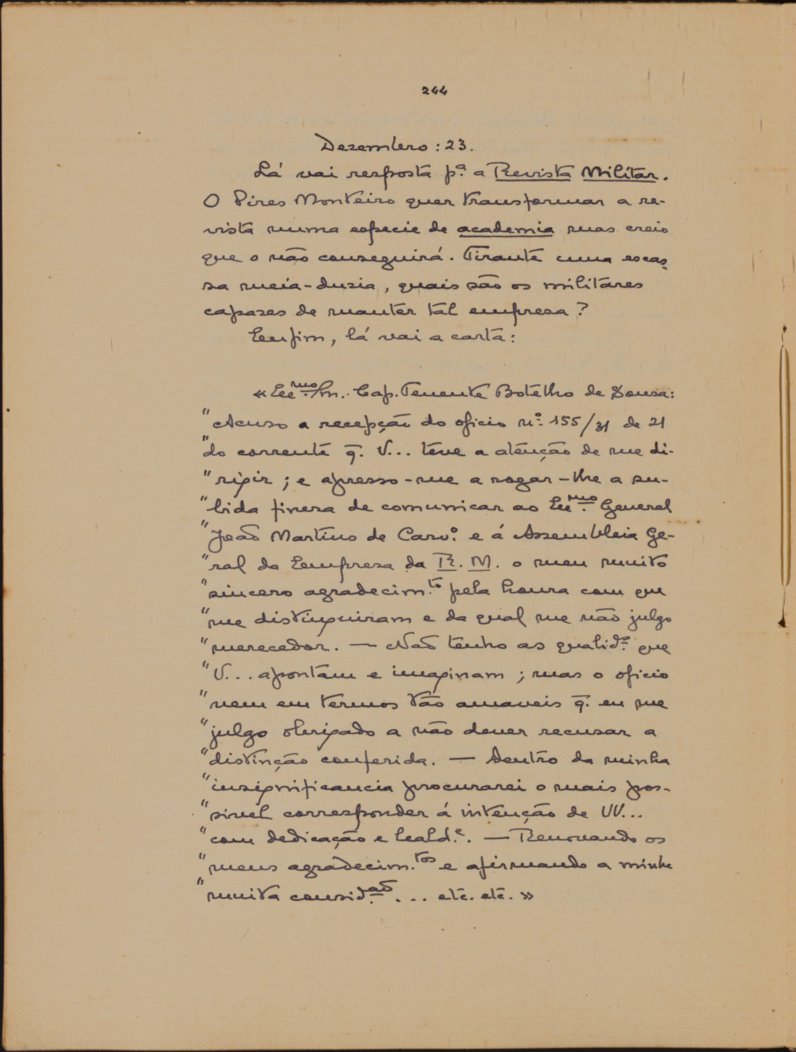 244
Dezembro : 23.
Lá vai resposta p.ª a Revista Militar.
O Pires Monteiro quer transformar a re-
vista numa especie de academia mas creio
que o não conseguirá. Tirante uma escas-
sa meia-duzia, quais são os militares
capazes de manter tal empresa?
Emfim, lá vai a carta:
«Ex.mo Sn. Cap. Tenente Botelho de Sousa:
"Acuso a recepção do oficio n.º 155/31 de 21
"do corrente q̄. V... teve a atenção de me di-
"rigir; e apresso-me a rogar-lhe a su-
"bida fineza de comunicar ao Ex.mo General
"João Martins de Carv.º e á Assembleia Ge-
"ral da Empresa da R. M. o meu muito
"sincero agradecim.to pela honra com que
"me distinguiram e da qual me não julgo
"merecedor. — Não tenho as qualid.es que
"V... apontam e imaginam; mas o oficio
"vem em termos tão amaveis q̄. eu me
"julgo obrigado a não dever recusar a
"distinção conferida. — Dentro da minha
"insignificancia procurarei o mais pos-
"sivel corresponder á intenção de VV...
"com dedicação e leald.e. — Renovando os
"meus agradecim.tos e afirmando a minha
"muita consid.ação ... etc. etc.»